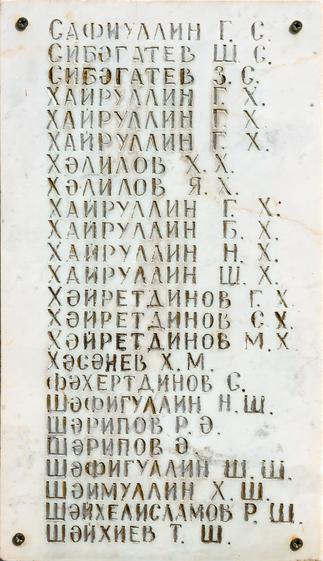 САФИУЛЛИН Г. С.
СИБӘГАТЕВ Ш. С.
СИБӘГАТЕВ З. С.
ХАЙРУЛЛИН Г. Х.
ХАЙРУЛЛИН Г. Х.
ХАЙРУЛЛИН Г. Х.
ХӘЛИЛОВ Х. Х.
ХӘЛИЛОВ Я. Х.
ХАЙРУЛЛИН Г. Х.
ХАЙРУЛЛИН Б. Х.
ХАЙРУЛЛИН Н. Х.
ХАЙРУЛЛИН Ш. Х.
ХӘЙРЕТДИНОВ Г. Х.
ХӘЙРЕТДИНОВ С. Х.
ХӘЙРЕТДИНОВ М. Х.
ХӘСӘНЕВ Х. М.
ФӘХЕРТДИНОВ С.
ШӘФИГУЛЛИН Н. Ш.
ШӘРИПОВ Р. Ә.
ШӘРИПОВ Ә.
ШӘФИГУЛЛИН Ш. Ш.
ШӘЙМУЛЛИН Х. Ш.
ШӘЙХЕЛИСЛАМОВ Р. Ш.
ШӘЙХИЕВ Т. Ш.